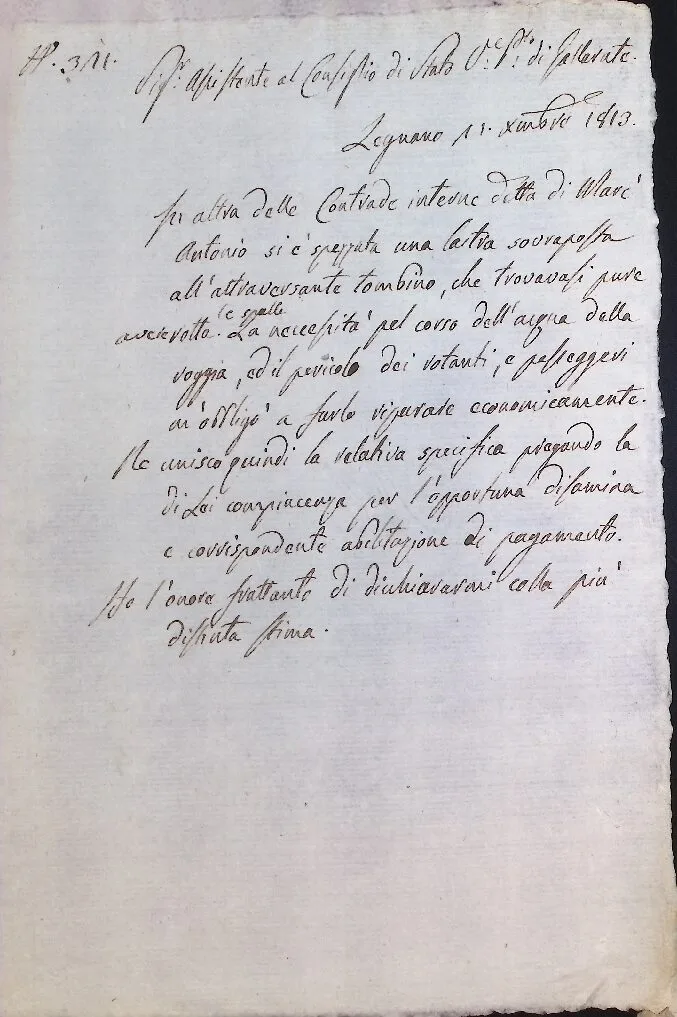 N. 311.
Sig.r Assistente al Consiglio di Stato V.e P.to di Gallarate.
Legnano 11. Xmbre 1813.
In altra delle Contrade interne detta di Maré
Antonio si è spezzata una lastra sovraposta
all'attraversante tombino, che trovavasi pure
avere rotta le spalle. La necessità pel corso dell'acqua della
roggia, ed il pericolo dei rotanti, e passeggeri
m'obbligò a farlo riparare economicamente.
Ne unisco quindi la relativa specifica pregando la
di Lei compiacenza per l'opportuna disamina
e corrispondente abilitazione di pagamento.
Ho l'onore frattanto di dichiararmi colla più
distinta stima.